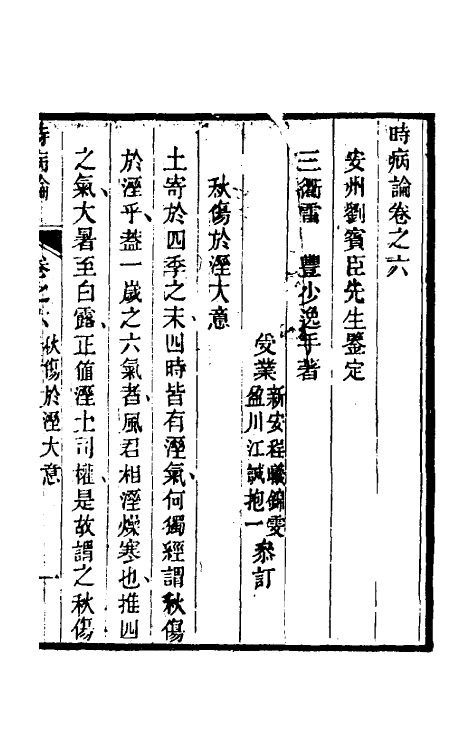 時病論卷之六
安州劉賓臣先生鑒定
三衢雷　豐少逸年著
受業新安程曦錦雯
盈川江誠抱一叅訂
秋傷於溼大意
土寄於四季之末四時皆有溼氣何獨經謂秋傷
於溼乎葢一歲之六氣者風君相溼燥寒也推四
之氣大暑至白露正值溼土司權是故謂之秋傷
時病論　卷之六　秋傷於溼大意　一